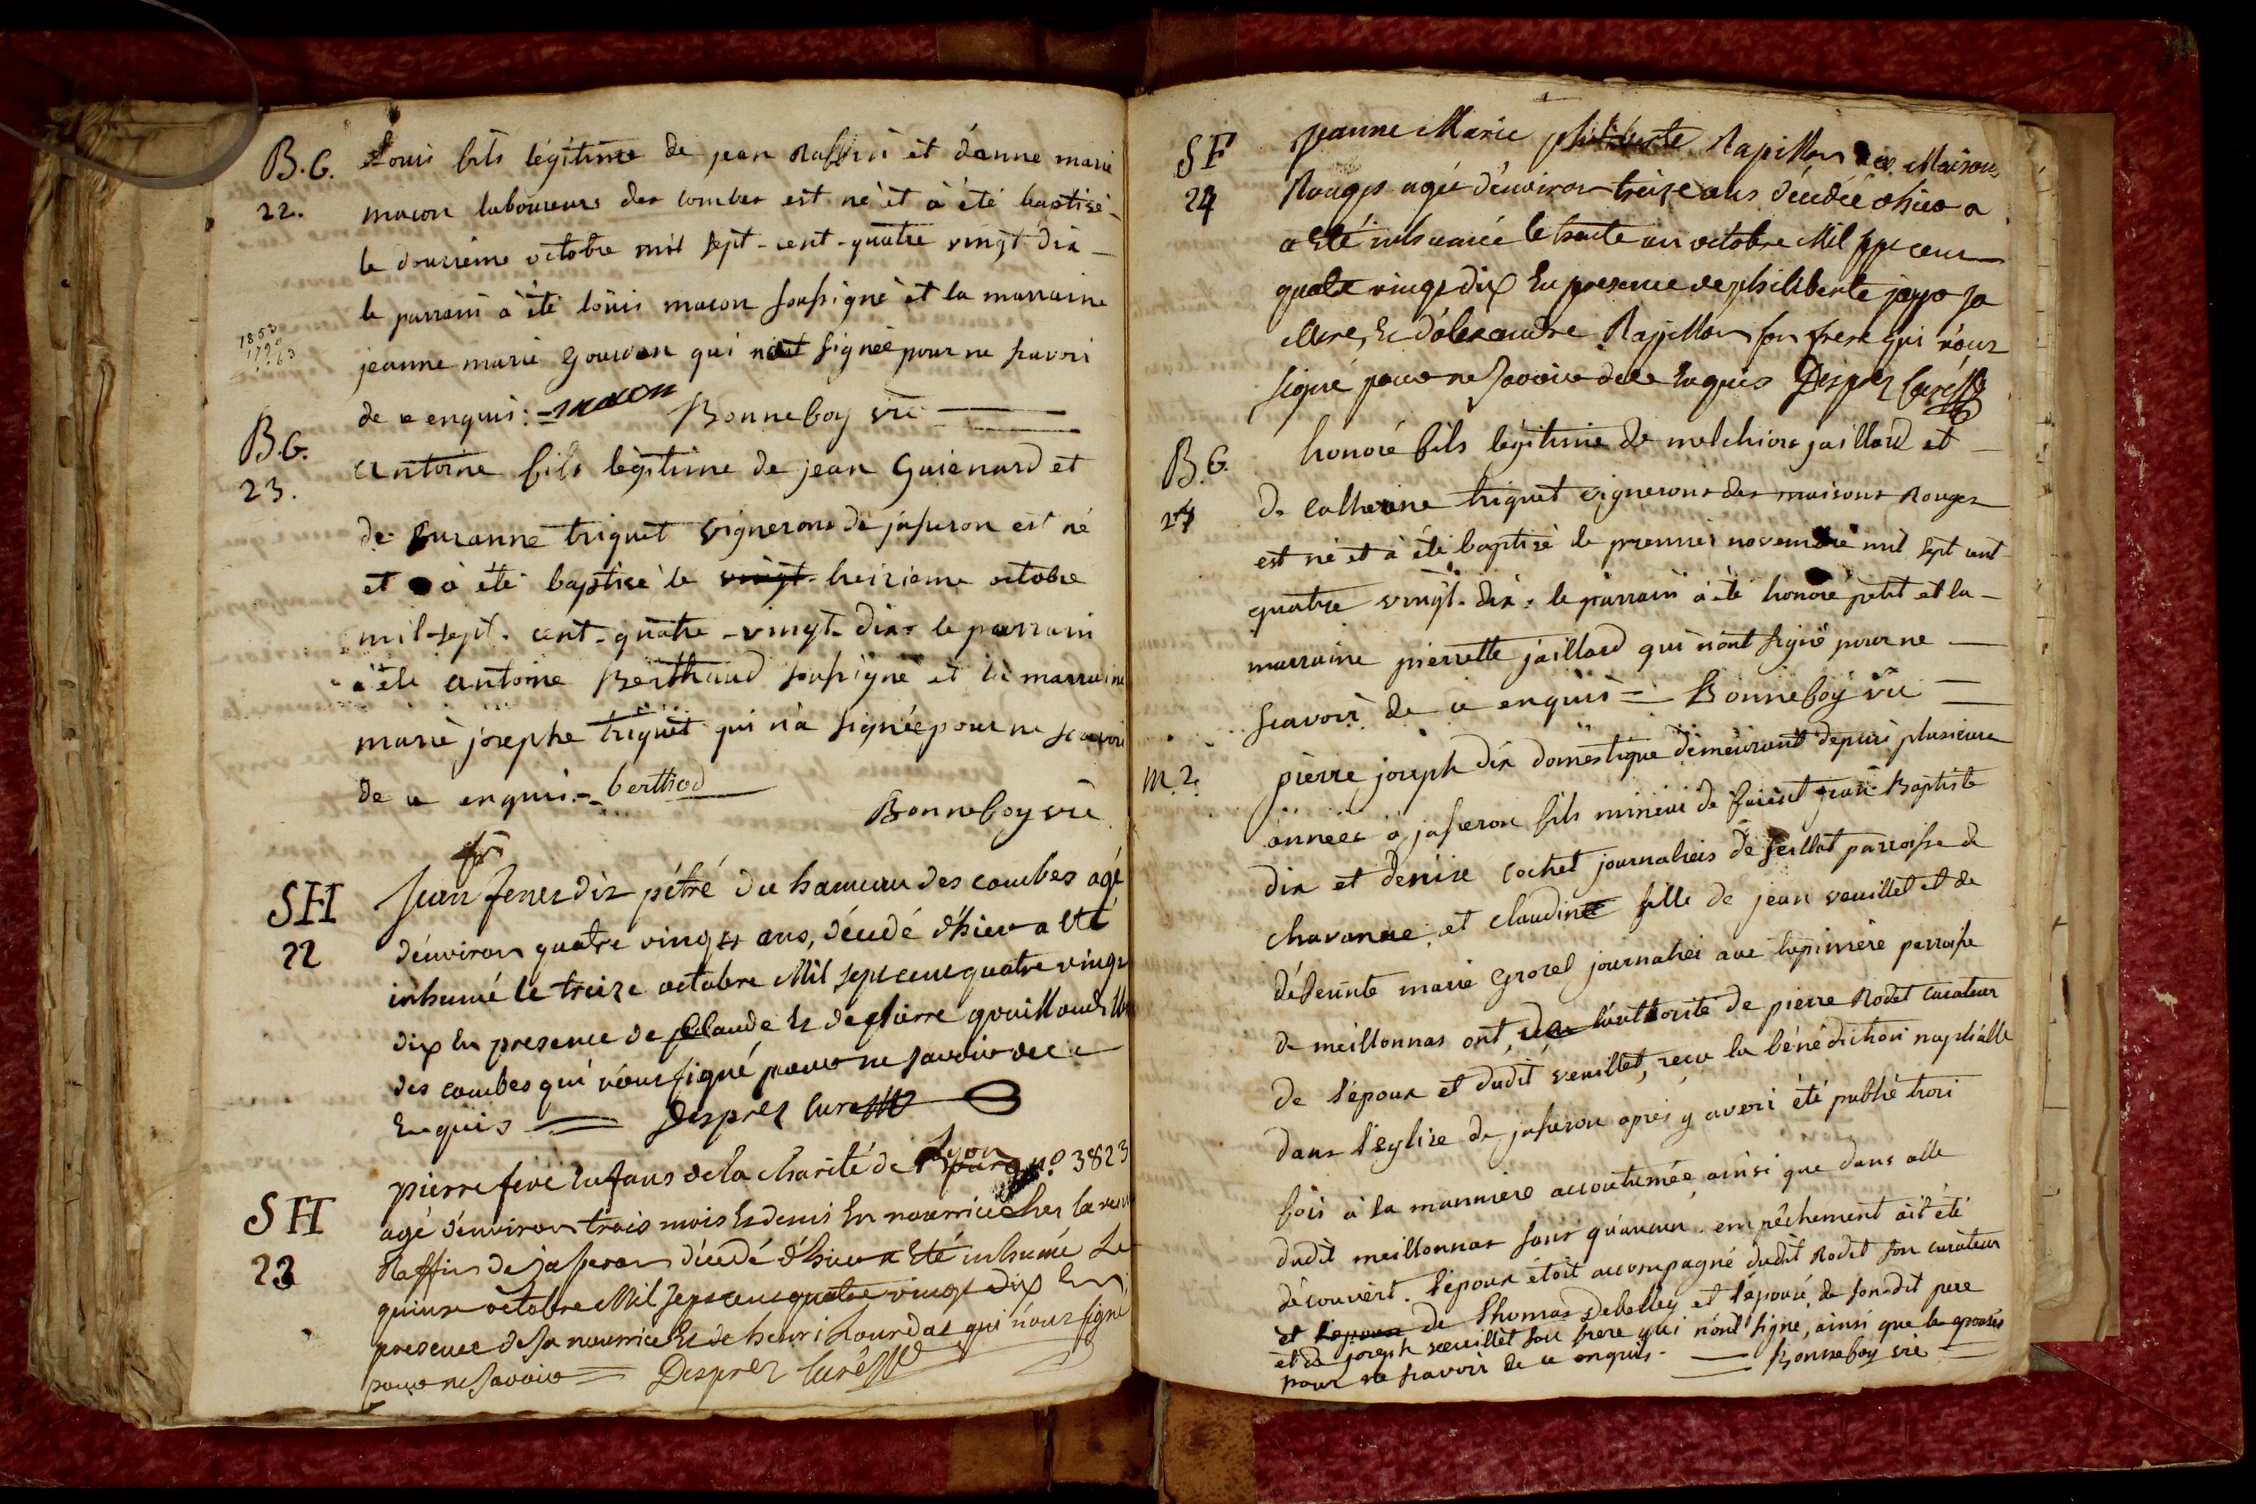 B.G. Louis fils légitime de jean Raffin et d'anne marie
22. macon laboureurs des combes est né et à été baptisé
le douzieme octobre mil sept-cent-quatre vingt dix
le parrain à été loüis macon soussigné et la marraine
1853
1790
63
jeanne marie qui n'at signée pour ne scavoir
de ce enquis: macon Bonneboy vic
B.G.
23.
antoine fils légitime de jean Guienard et
de Suzanne triquet vignerons de jasseron est né
et à été baptisé le vingt treizieme octobre
mil-sept-cent-quatre-vingt-dix le parrain
à été antoine Berthaud soussigné et la marraine
marie josephe triquet qui n'a signée pour ne scavoir
de ce enquis berthod
Bonneboy vic
SH
22
jean dix pétré du hameau des combes agé
d'environ quatre vingts ans, décédé d'hier a été
inhumé le treize octobre Mil sept cent quatre vingt
dix En presence de Claude Et de pierre
des combes qui n'ont signé pour ne savoir de ce
Enquis Desprez Curé
SH
23
pierre Enfans de la charité de Lyon n° 3823
agé d'environ trois mois Et demi En nourrice chez la
Raffin de jasseron décédé d'hier a été inhumé Le
quinze octobre Mil sept cent quatre vingt dix En
presence de sa nourrice Et de henri qui n'ont signé
pour ne savoir Desprez Curé
SF
24
jeanne Marie philiberte Rapillon des Maisons
Rouges agée d'environ treize ans décédée d'hier a
a été inhumée le trente un octobre Mil sept cent
quatre vingt dix En presence de philiberte sa
Mere, Et d'alexandre Rapillon son frere qui n'ont
signé pour ne savoir de ce Enquis Desprez Curé
B.G.
24
honoré fils légitime de melchior jaillard et
de Catherine triquet vignerons des maisons Rouges
est né et à été baptisé le premier novembre mil sept cent
quatre vingt-dix. le parrain à été honoré petit et la
marraine pierrette jaillard qui n'ont signé pour ne
scavoir de ce enquis Bonneboy vic
M. 2.
pierre joseph dix domestique demeurant depuis plusieurs
années à jasseron fils mineur de jean Baptiste
dix et denise cochet journaliers de parroisse de
chavanne, et claudine fille de jean veuillet et de
défunte marie Grozel journalier parroisse
de meillonnas ont, de l'authorité de pierre Rodet curateur
de l'époux et dudit veuillet, reçu la bénédiction nuptialle
dans l'eglise de jasseron après y avoir été publié trois
fois à la manniere accoutumée, ainsi que dans celle
dudit meillonnas sans qu'aucun empêchement ait été
découvert. l'epoux etoit accompagné dudit Rodet son curateur
et l'epouse de Thomas Debelley et l'epouse, de sondit pere
et de joseph veuillet son frere, qui n'ont signé, ainsi que les epousés
pour ne scavoir de ce enquis. Bonneboy vic